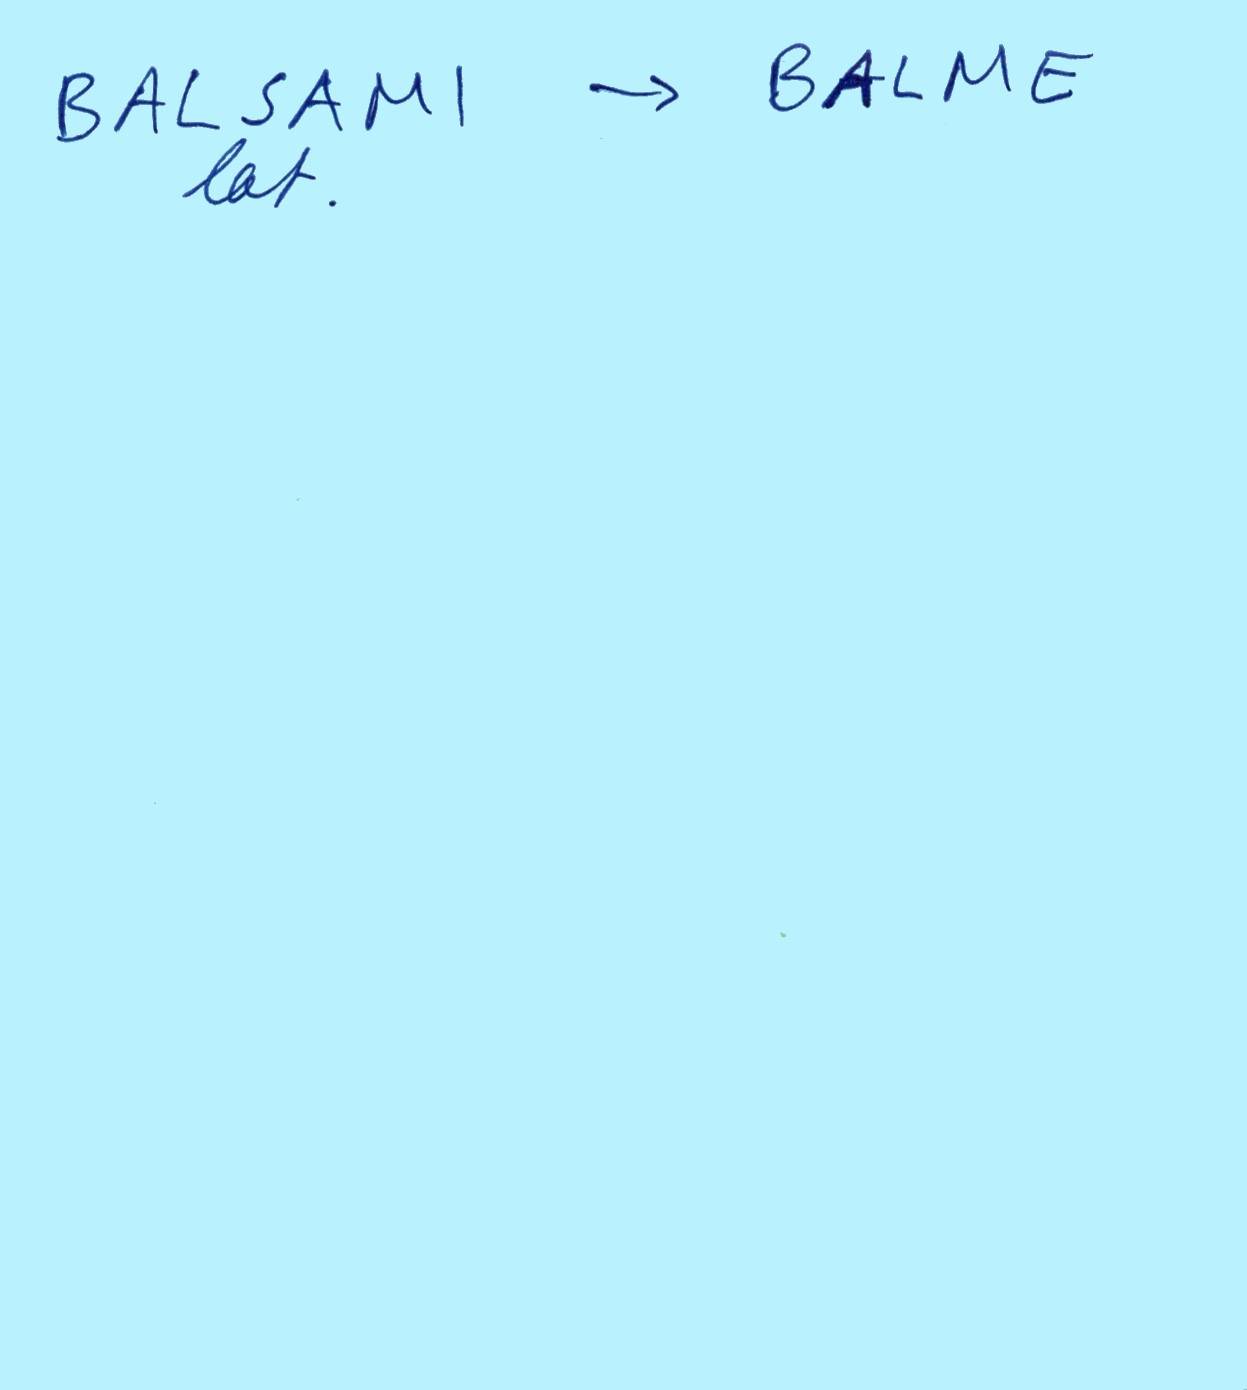 BALSAMI → BALME
lat.